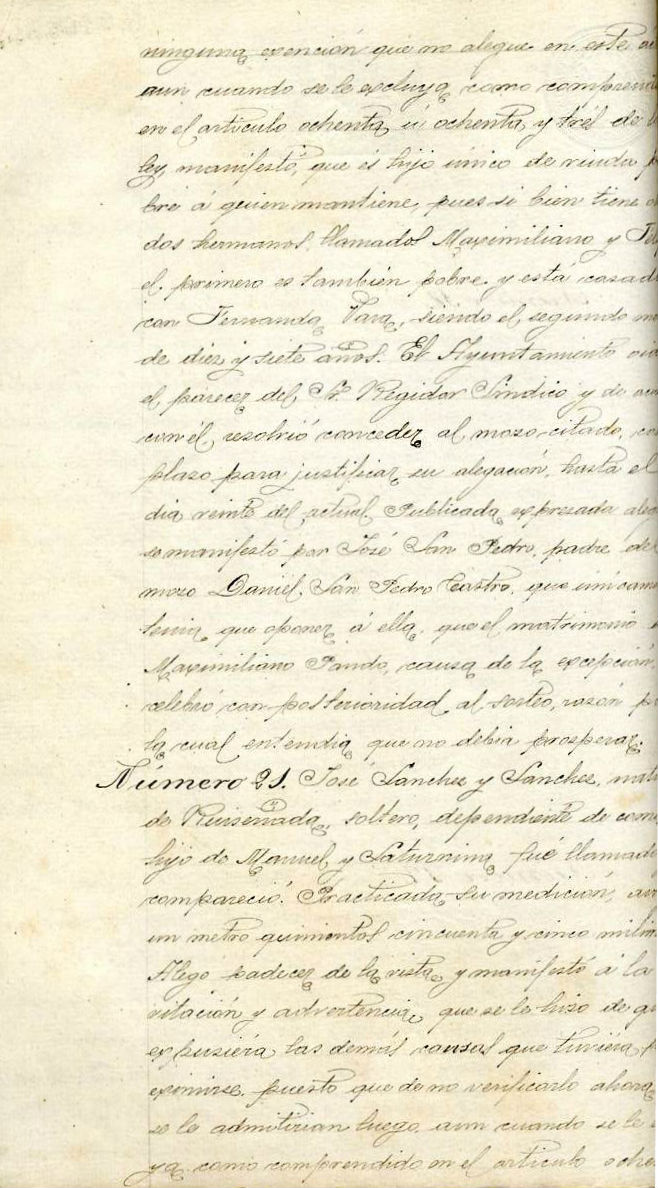 ninguna exención que no alegue en este
aun cuando se le excluya como comprendi
en el artículo ochenta ú ochenta y tres de
ley, manifestó, que és hijo único de viuda p
bre á quien mantiene, pues si bien tiene
dos hermanos, llamados Maximiliano y
el primero es también pobre y está casad
con Fernanda Vara, siendo el segundo
de diez y siete años. El Ayuntamiento
el parecer del Sr. Regidor Síndico y de
con él resolvió conceder al mozo citado,
plazo para justificar su alegación, hasta el
dia veinte del actual. Publicada expresada
se manifestó por José San Pedro, padre de
mozo Daniel San Pedro Castro, que únicame
tenia que oponer á ella, que el matrimonio
Maximiliano Pando, causa de la excepción,
celebró con posterioridad al sorteo, razón p
la cual entendia que no debia prosperar.
Número 21. José Sanchez y Sanchez, nat
de Ruiseñada, soltero, dependiente de com
hijo de Manuel y Saturnina fué llamado
compareció. Practicada su medición,
un metro quinientos cincuenta y cinco milim
Alegó padecer de la vista y manifestó á la
vitación y advertencia que se le hizo de q
expusiera las demás causas que tuviera p
eximirse, puesto que de no verificarlo ahora
se le admitirian luego, aun cuando se le
ya como comprendido en el artículo oche